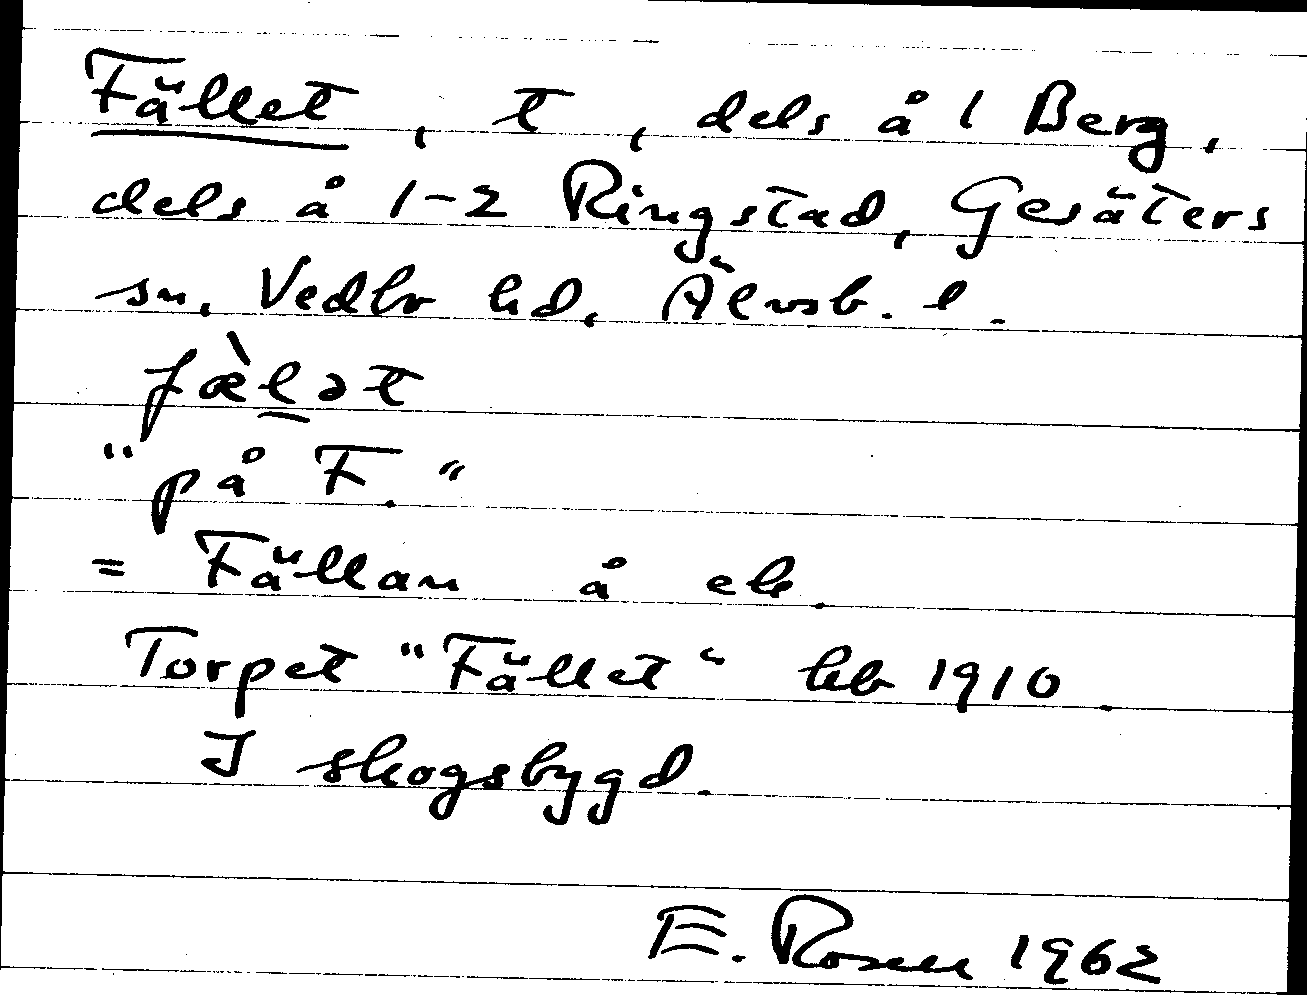 Fället, t, dels å 1 Berg,
dels å 1-2 Ringstad, Gesäters
sn, Vedbo hd, Älvsb. l.
fæ̀l̲ət
"på F."
= Fällan å ek.
Torpet "Fället" hb 1910.
I skogsbygd.
E. Rosell 1962